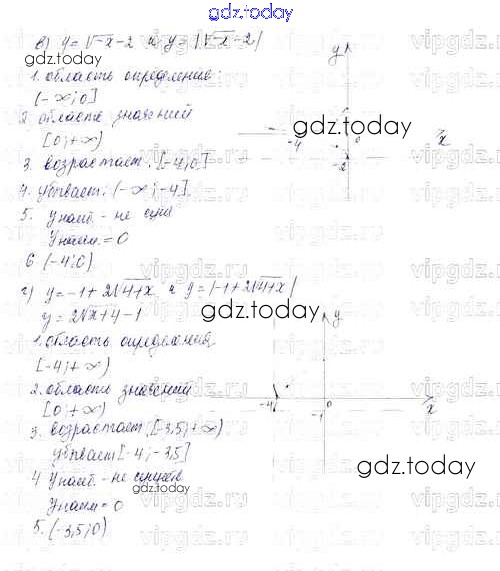 gdz.today
в) y = √-x - 2 и y = |√-x - 2|
gdz.today
1. область определения:
(-∞; 0]
2. область значений
[0; +∞)
3. возрастает: [-4; 0]
4. убывает: (-∞; -4]
5. Yнаиб. - не сущ
Yнаим. = 0
6 (-4; 0)
y
x
-4
0
-2
gdz.today
г) y = -1 + 2√4+x и y = |-1 + 2√4+x|
gdz.today
y = 2√x+4 - 1
1. область определения
[-4; +∞)
2. область значений
[0; +∞)
3. возрастает: [-3,5; +∞)
убывает [-4; -3,5]
4 Yнаиб. - не существ
gdz.today
Yнаим = 0
5. (-3,5; 0)
y
x
-4
0
-1
gdz.today
gdz.today
vipgdz.ru